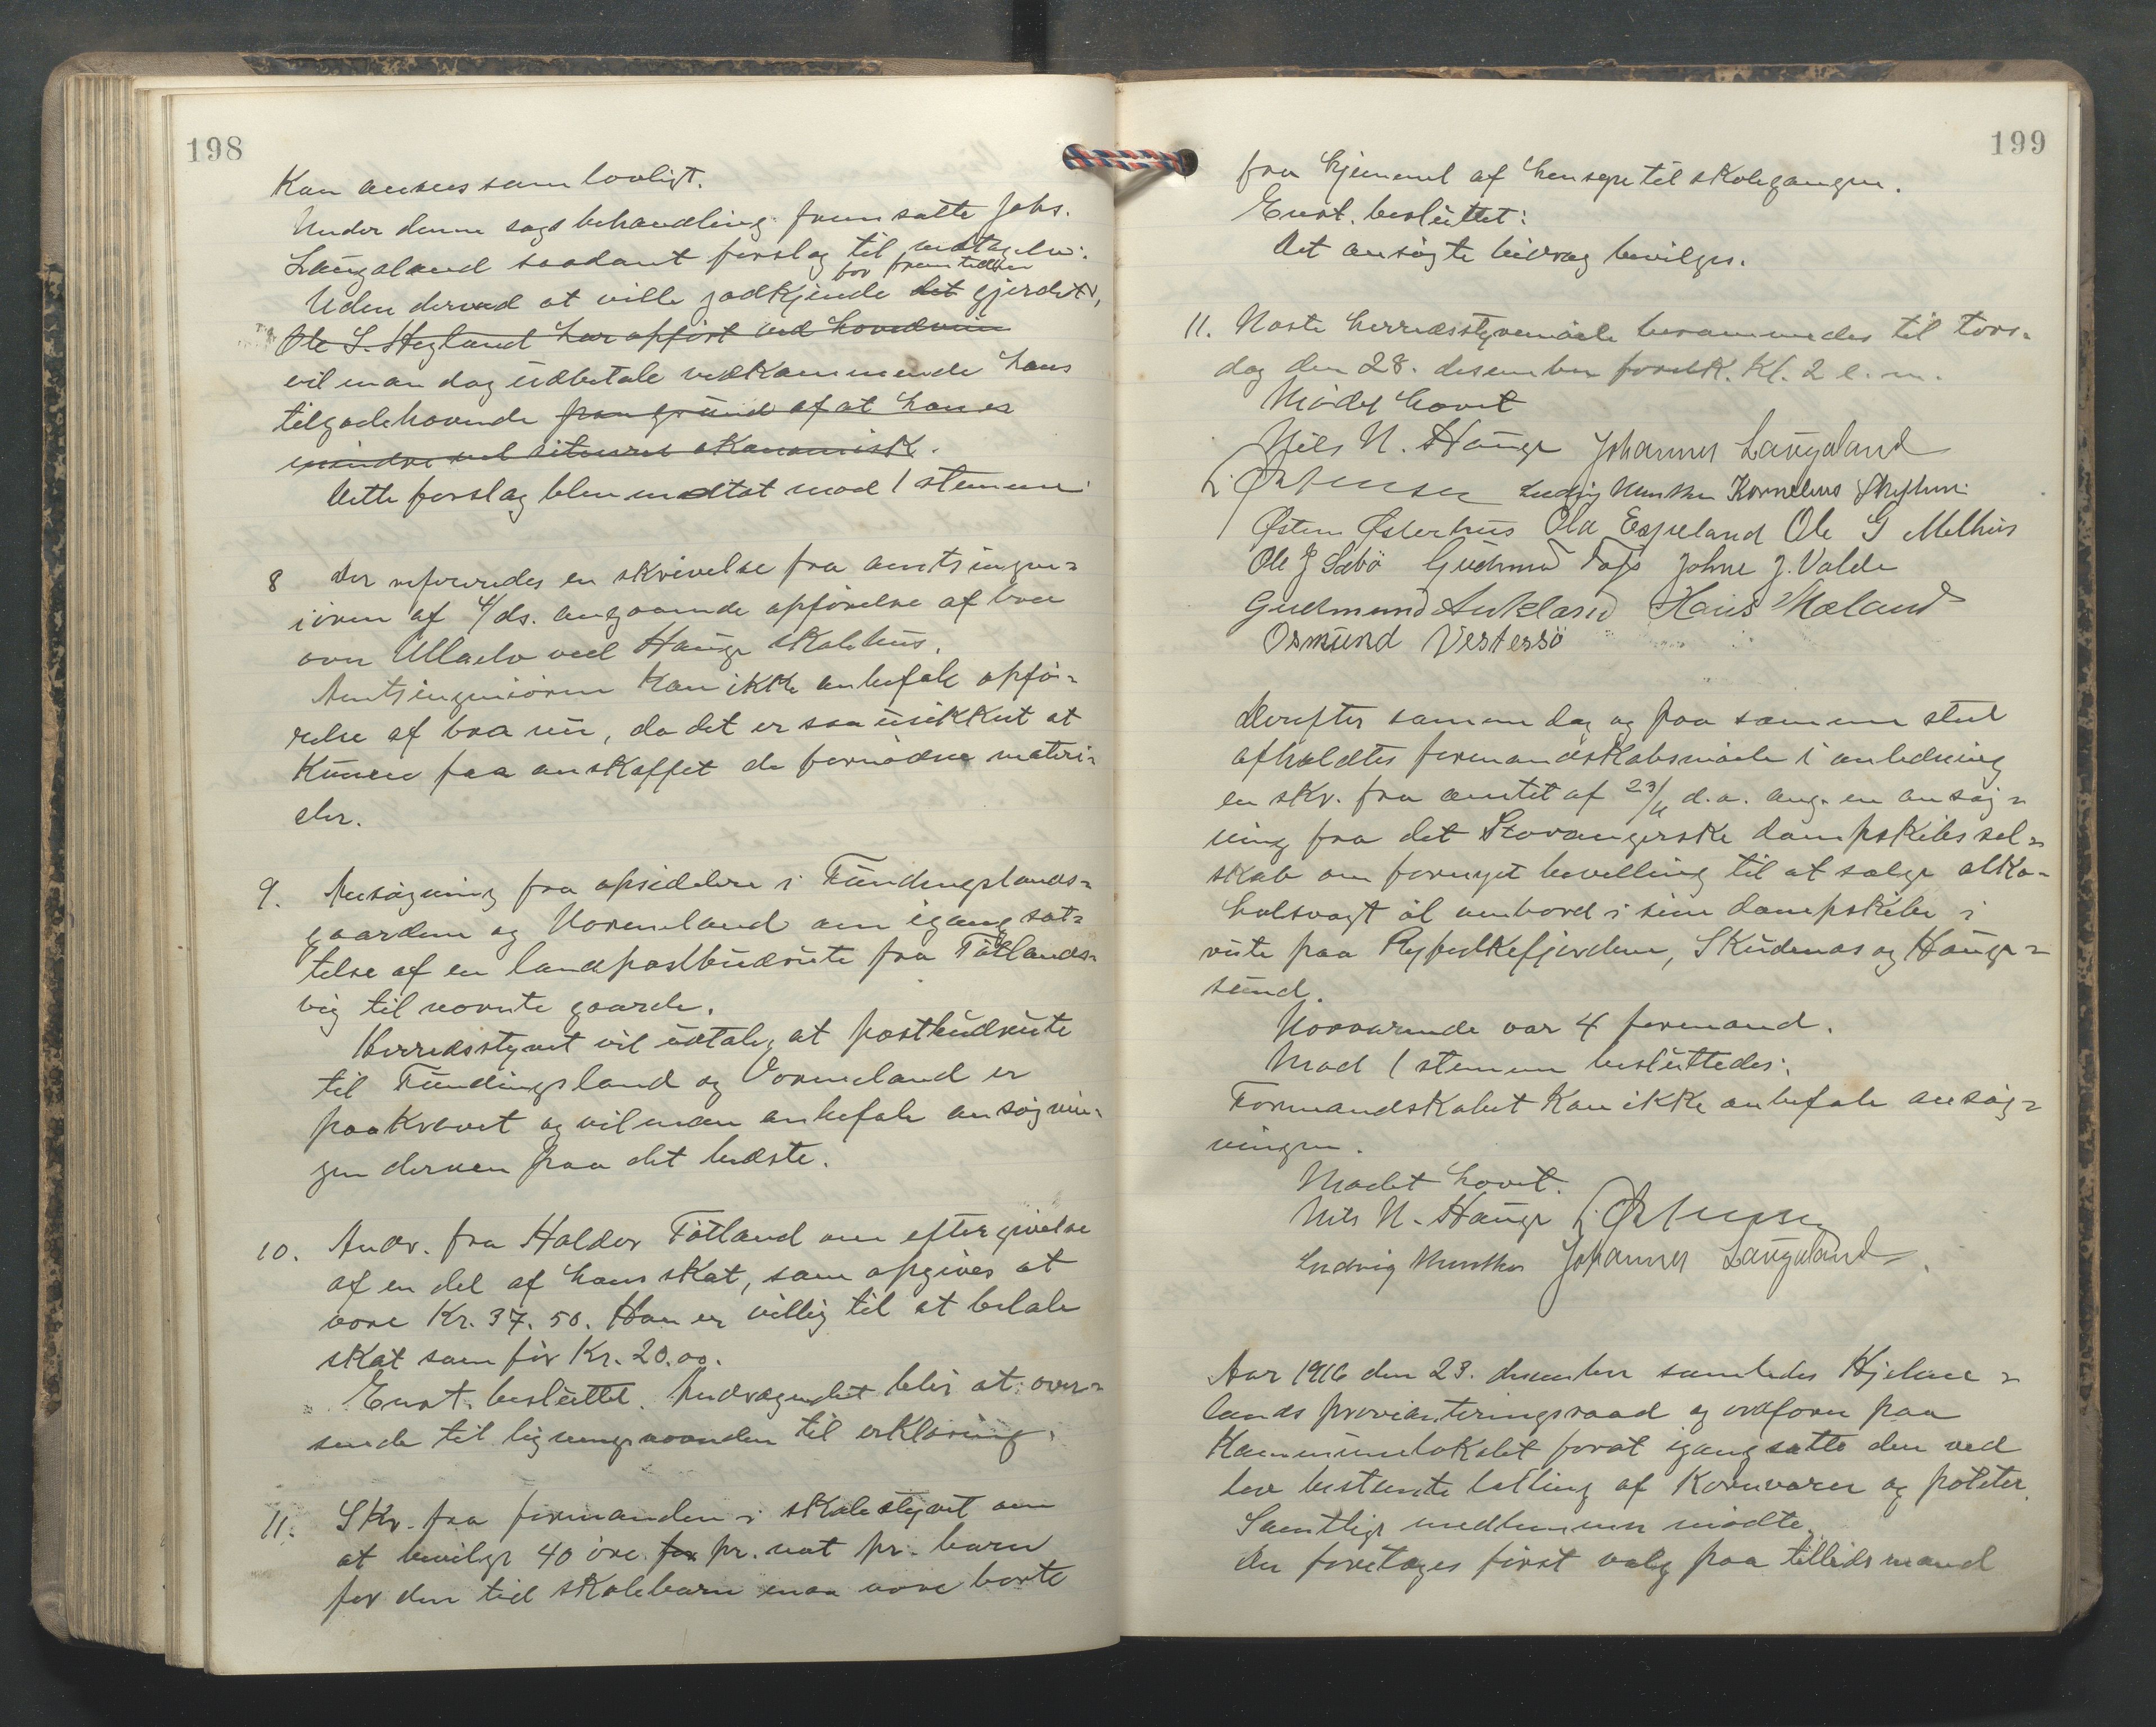 198
kan ansees som lovligt.
Under denne sags behandling fremsatte Johs.
Laugaland saadant forslag til vedtagelse:
for fremtiden
Uden derved at ville godkjende det gjerdet,
Ole S. Hegland har opført ved hovedveien
vil man dog udbetale vedkommende hans
tilgodehavende paa grund af at han er
mindre vel situeret økonomisk.
Dette forslag blev vedtat mod 1 stemme.
8 Der refereredes en skrivelse fra amtsingen=
iøren af 4/ds. angaaende opførelse af bro
over Ullaelv ved Hauge skolehus.
Amtsingeniøren kan ikke anbefale opfø=
relse af bro nu, da det er saa usikkert at
kunne faa anskaffet de fornødne materi=
eler.
9. Ansøgning fra opsiddere i Fundingslands=
gaardene og Vormeland om igangsæt=
telse af en landpostbudrute fra Tøtlands=
vig til nævnte gaarde.
Herredsstyret vil udtale, at postbudrute
til Fundingsland og Vormeland er
paakrævet og vil man anbefale ansøgnin=
gen derom paa det bedste.
10. Andr. fra Haldor Tøtland om eftergivelse
af en del af hans skat, som opgives at
være Kr. 37.50. Han er villig til at betale
skat som før Kr. 20.00.
Enst. besluttet. Andragendet blir at over=
sende til ligningsnævnden til erklæring.
11. Skr. fra formanden i skolestyret om
at bevilge 40 øre for pr. nat pr. barn
for den tid skolebarn maa være borte
199
fra hjemmet af hensyn til skolegangen.
Enst. besluttet:
Det ansøgte bidrag bevilges.
11. Næste herredsstyremøde berammedes til tors=
dag den 28. desember førstk. Kl. 2 e.m.
Mødet hævet
Nils N. Hauge Johannes Laugaland
Ludvig Munthe Kornelius
Østen Østerhus Ola Espeland Ole G Melhus
Ole J Sæbø Gudmund Johne J. Valde
Gudmund Hans Mæland
Osmund Vestersø
Derefter samme dag og paa samme sted
afholdtes formandskabsmøde i anledning
en skr. fra amtet af 23/11 d.a. ang. en ansøg=
ning fra det Stavangerske dampskibssel=
skab om fornyet bevilling til at sælge alko=
holsvagt øl ombord i sine dampskibe i
rute paa Ryfylkefjordene, Skudenæs og Hauge=
sund.
Nærværende var 4 formænd.
Mod 1 stemme besluttedes:
Formandskabet kan ikke anbefale ansøg=
ningen.
Mødet hævet.
Nils N. Hauge
Ludvig Munthe Johannes Laugaland
Aar 1916 den 23. desember samledes Hjelme=
lands provianteringsraad og ordfører paa
Kommunelokalet forat igangsætte den ved
lov bestemte telling af kornvarer og poteter.
Samtlige medlemmer mødte.
Der foretages først valg paa tillidsmænd